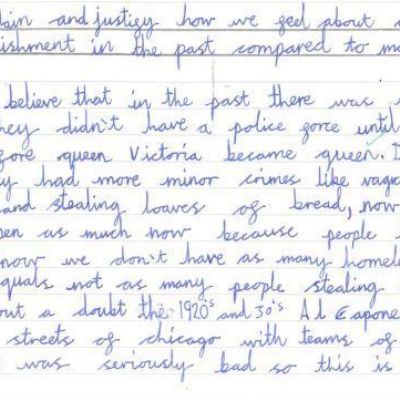 lain and justify how we feel about
ishment in the past compared to mo
believe that in the past there was
hey didn't have a police force until
fore queen Victoria became queen. I
y had more minor crimes like vagra
and stealing loaves of bread, now
pen as much now because people
now we don't have as many homele
equals not as many people stealing
out a doubt the 1920s and 30's Al Capone
streets of chicago with teams of
t was seriously bad so this is